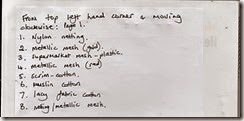 From top left hand corner & moving
clockwise: Page 1.
1. Nylon netting.
2. metallic mesh (gold).
3. Supermarket mesh - plastic.
4. metallic mesh (red)
5. Scrim - cotton.
6. Muslin cotton
7. lacy fabric cotton
8. netting/metallic mesh.